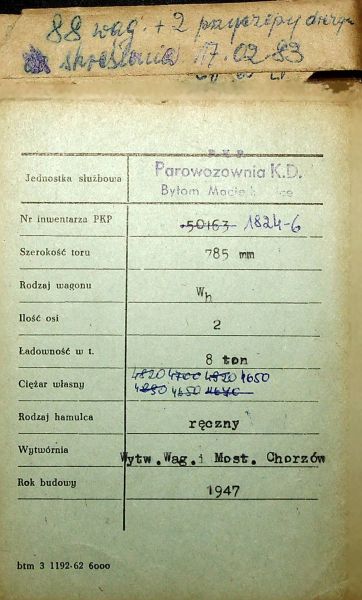 88 wag. + 2 przyczepy drezyn
skreślenia 17.02.83
P K P
Jednostka służbowa Parowozownia K.D.
Bytom Macie
Nr inwentarza PKP 50163 1824-6
Szerokość toru 785 mm
Rodzaj wagonu Wh
Ilość osi 2
Ładowność w t. 8 ton
4820 4700 4820 4650
Ciężar własny 4650
Rodzaj hamulca ręczny
Wytwórnia Wytw.Wag.i Most. Chorzów
Rok budowy 1947
btm 3 1192-62 6000